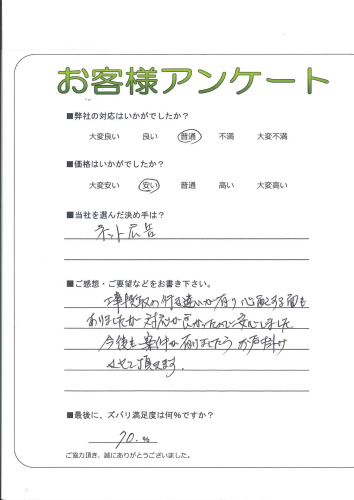 お客様アンケート
■弊社の対応はいかがでしたか？
大変良い 良い 普通 不満 大変不満
■価格はいかがでしたか？
大変安い 安い 普通 高い 大変高い
■当社を選んだ決め手は？
ネット広告
■ご感想・ご要望などをお書き下さい。
工事段取の行き違いが有り心配する面も
ありましたが対応が良かったので安心しました
今後も案件が有りましたらお声掛け
させて頂きます。
■最後に、ズバリ満足度は何％ですか？
70.％
ご協力頂き、誠にありがとうございました。